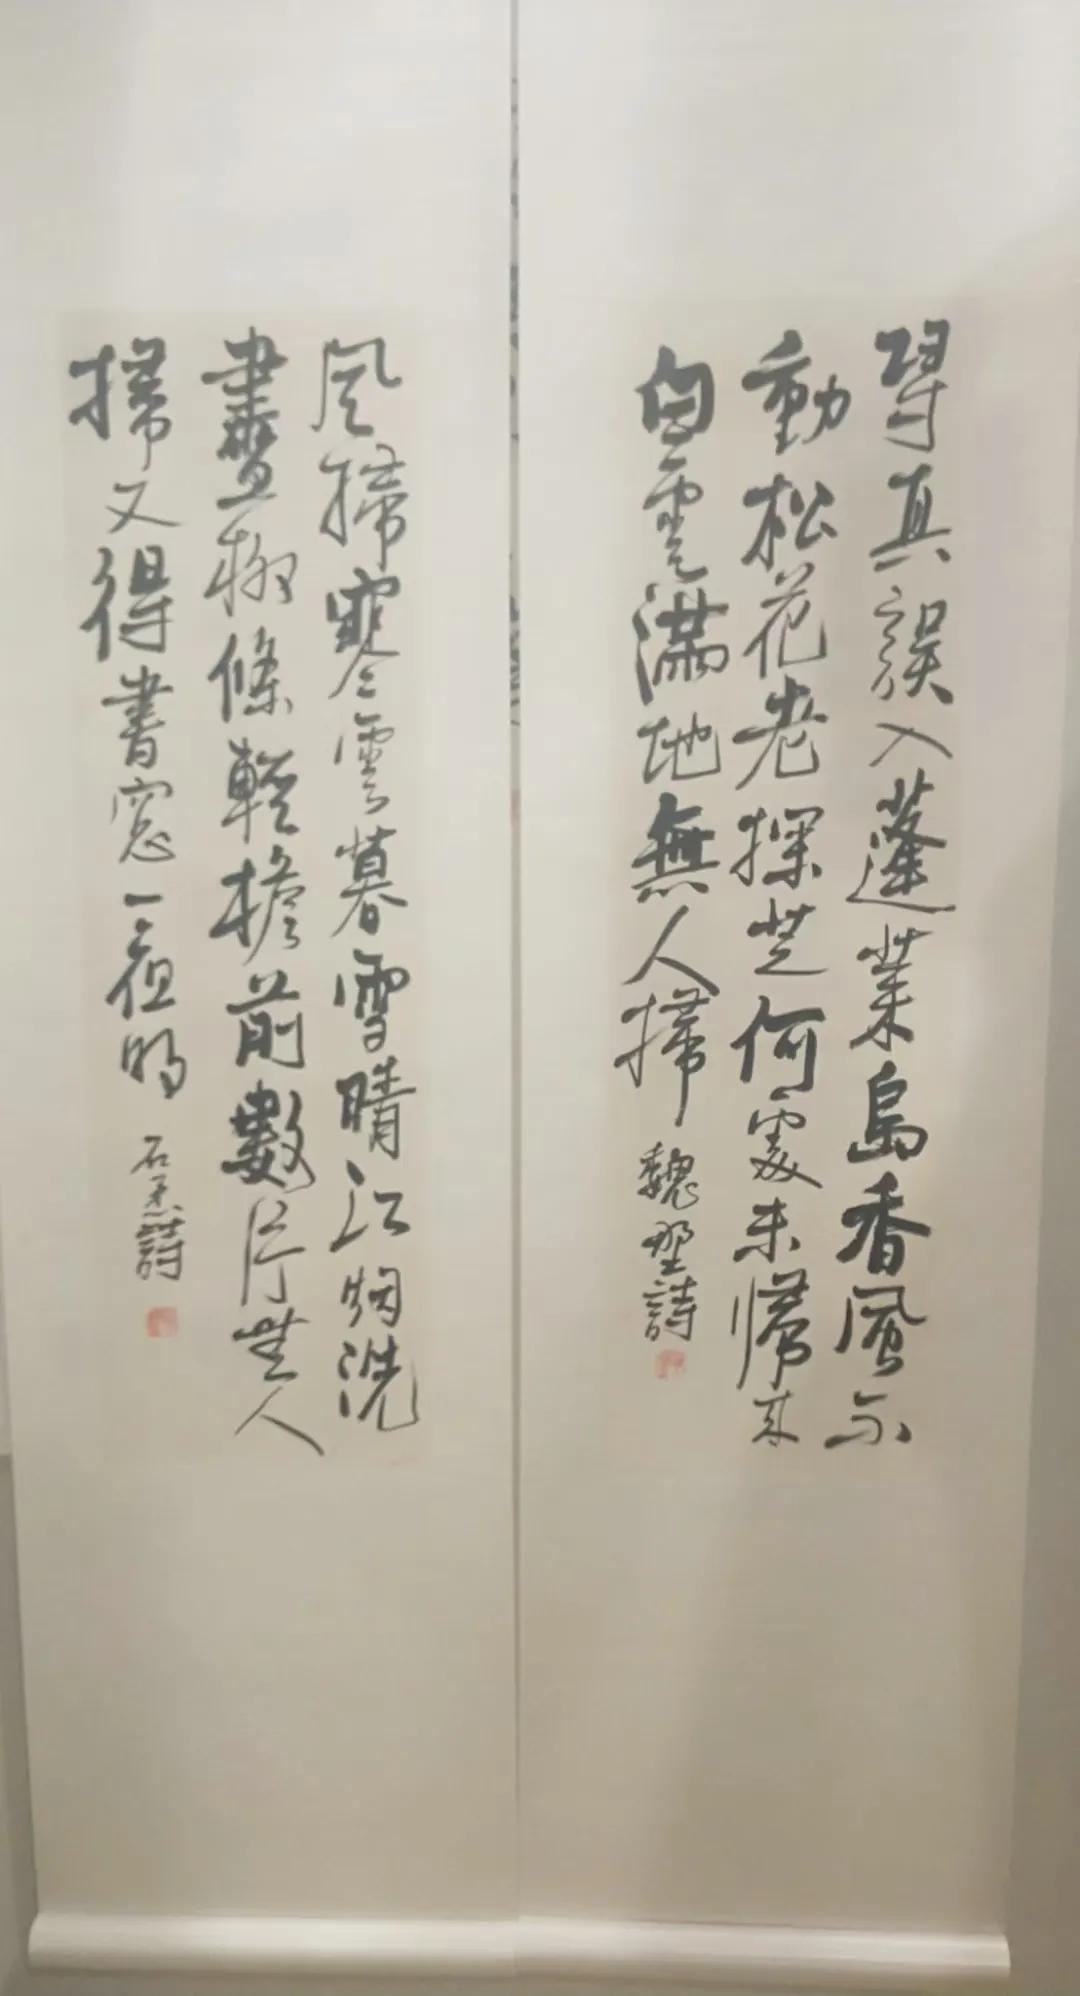 尋真誤入蓬萊島香風不
動松花老採芝何處未歸來
白雲滿地無人掃 魏野詩
風掃寒雲暮雪晴江烟洗
盡柳條輕檐前數片無人
掃又得書窓一夜明 石詩